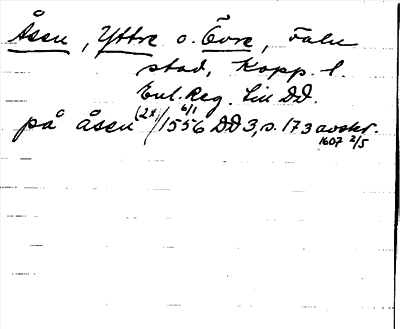 Åsen, Yttre o. Övre, Falu
stad, Kopp. l.
Enl. Reg. till DD.
på åsen (2x) 6/1 1556 DD 3, s. 173 avskr.
1607 2/5